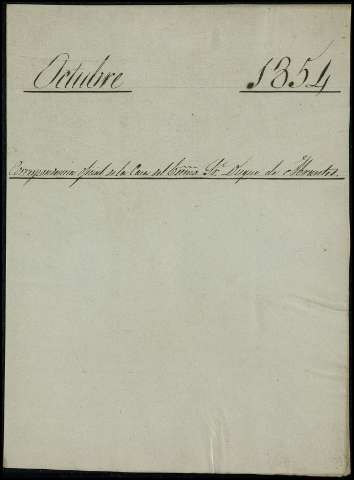 Octubre 1854
Correspondencia oficial de la Casa del Exmo Sr. Duque de Abrantes.